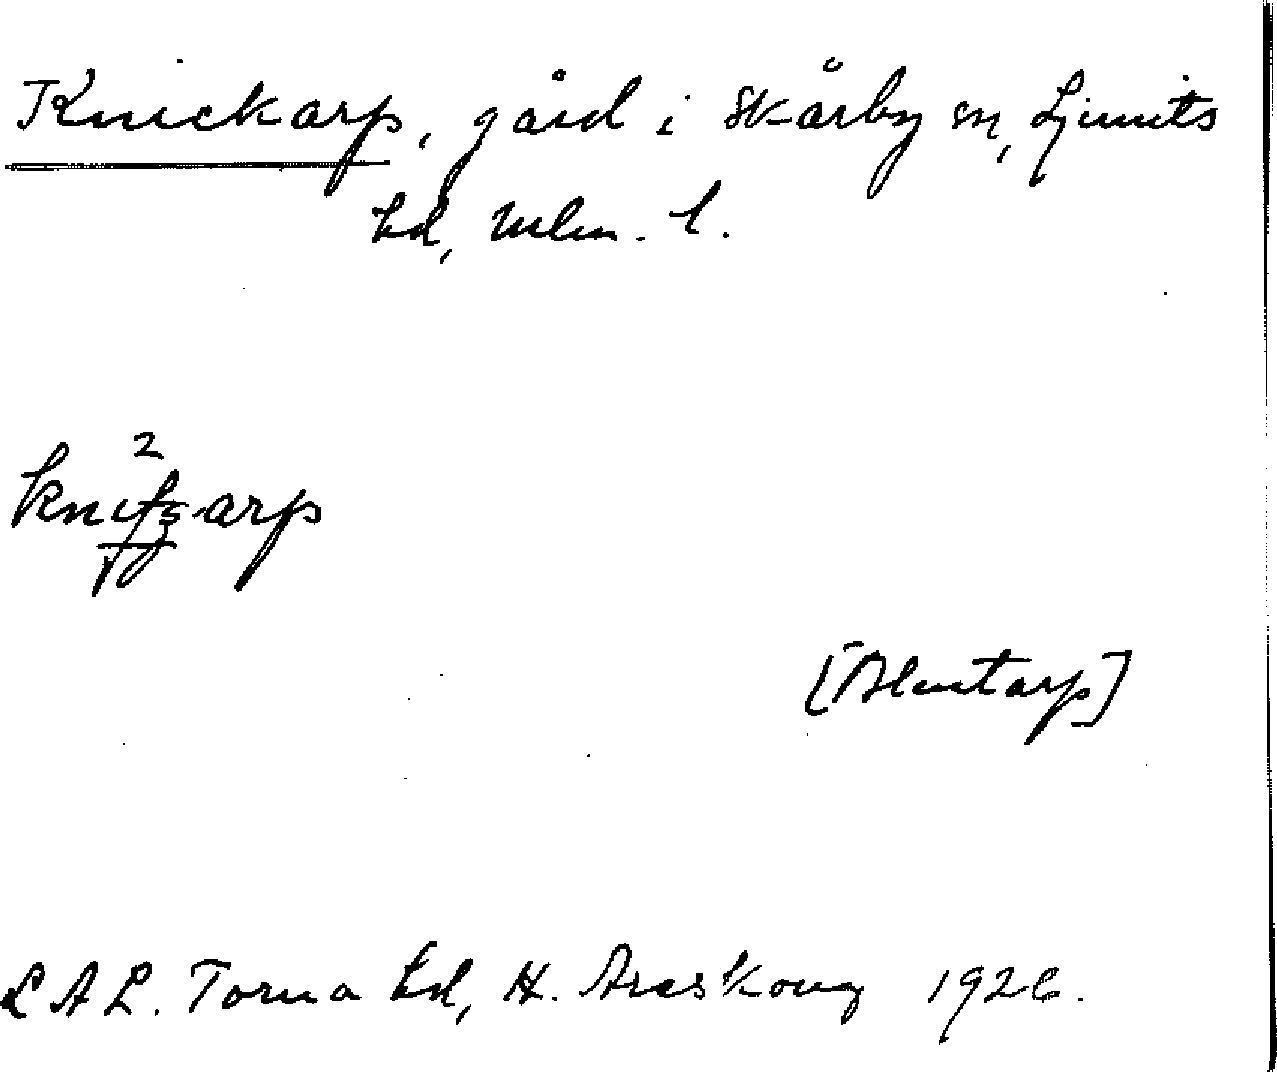 Knickarp, gård i Skårby sn, Ljunits
hd, Mlm. l.
2
[Blentarp]
LAL. Torna hd, H. Areskoug 1926.